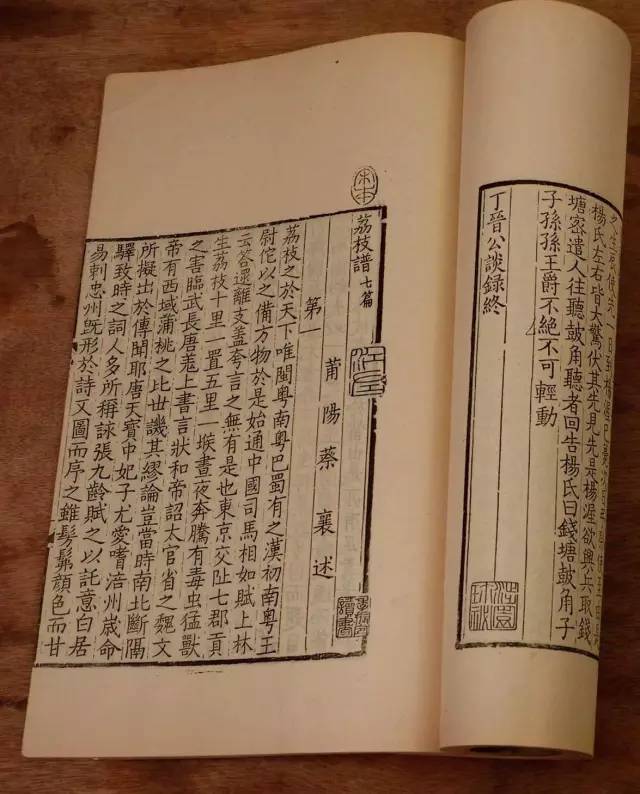 楊氏左右皆大驚伏其先見先是楊渥欲興兵取錢
塘密遣人往聽鼓角聽者回告楊氏曰錢塘鼓角子
子孫孫王爵不絕不可輕動
丁晉公談錄終
荔枝譜 七篇
莆陽蔡襄述
第一
荔枝之於天下唯閩粵南粵巴蜀有之漢初南粵王
尉佗以之備方物於是始通中國司馬相如賦上林
云荅遝離支蓋夸言之無有是也東京交阯七郡貢
生荔枝十里一置五里一堠晝夜奔騰有毒虫猛獸
之害臨武長唐羌上書言狀和帝詔太官省之魏文
帝有西域蒲桃之比世譏其繆論豈當時南北斷隔
所擬出於傳聞耶唐天寶中妃子尤愛嗜涪州歲命
驛致時之詞人多所稱詠張九齡賦之以託意白居
易刺忠州既形於詩又圖而序之雖髣髴顏色而甘